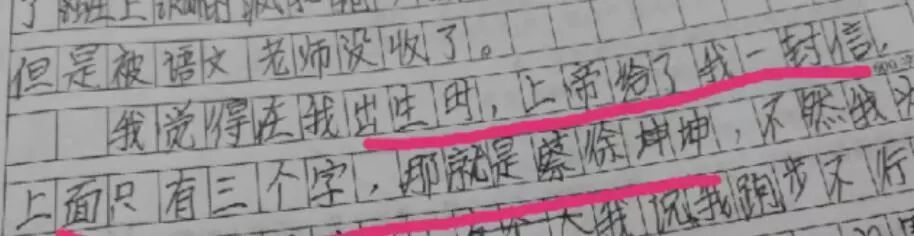 但是被语文老师没收了。
我觉得在我出生时，上帝给了我一封信，
上面只有三个字，那就是蔡徐坤坤，不然我
我跑步不行